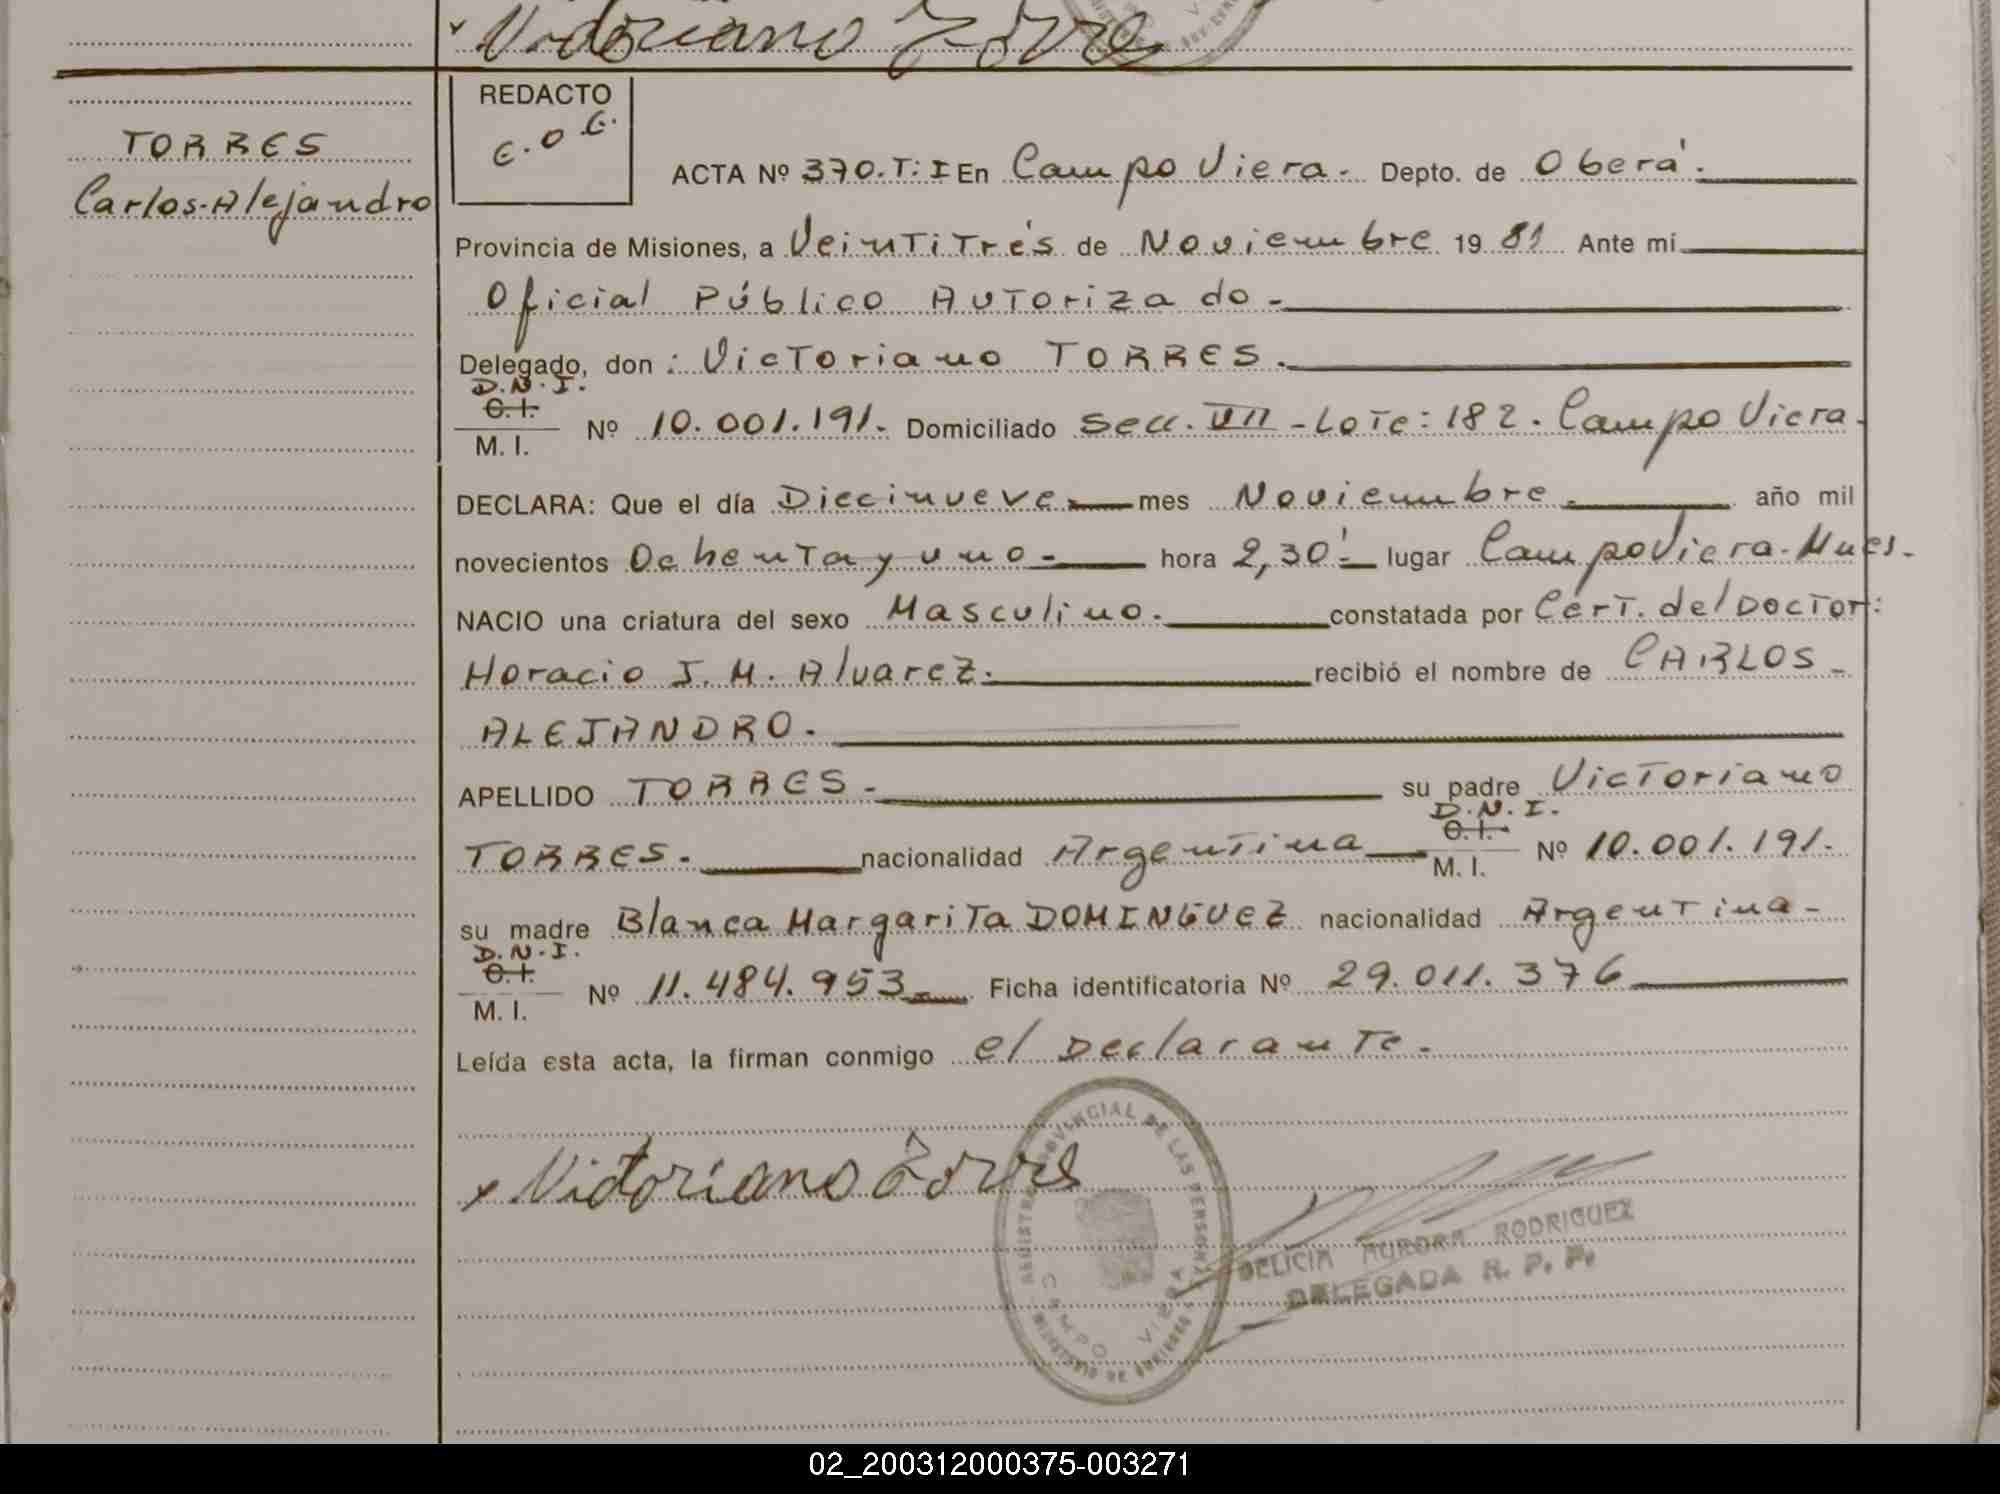 Victoriano Torres
TORRES
Carlos-Alejandro
REDACTO
E.O.G.
ACTA Nº 370.T:I En Campo Viera. Depto. de Oberá.
Provincia de Misiones, a Veintitrés de Noviembre 19 81 Ante mí
Oficial Público Autorizado-
Delegado, don: Victoriano TORRES.
D.N.I.
C.I.
M. I.
Nº 10.001.191. Domiciliado Secc. VII - Lote: 182. Campo Viera.
DECLARA: Que el día Diecinueve mes Noviembre. año mil
novecientos Ochenta y uno- hora 2,30'- lugar Campo Viera-Mnes.
NACIO una criatura del sexo Masculino. constatada por Cert. del Doctor:
Horacio J. M. Alvarez. recibió el nombre de CARLOS
ALEJANDRO.
APELLIDO TORRES.- su padre Victoriano
D.N.I.
C.I.
TORRES. nacionalidad Argentina M. I. Nº 10.001.191.
su madre Blanca Margarita DOMINGUEZ nacionalidad Argentina-
D.N.I.
C.I.
M. I.
Nº 11.484.953 Ficha identificatoria Nº 29.011.376
Leída esta acta, la firman conmigo el Declarante.
x Victoriano Torres
REGISTRO PROVINCIAL DE LAS PERSONAS
CAMPO VIERA
DELICIA AURORA RODRIGUEZ
DELEGADA R. P. P.
02_200312000375-003271